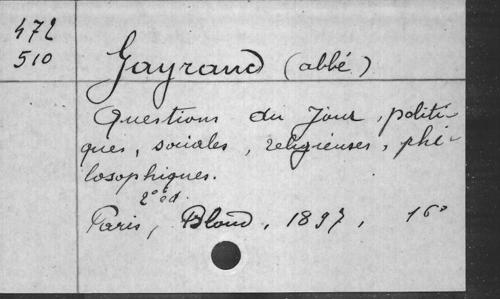 472
510
Gayraud (abbé)
Questions du Jour, politi-
ques, sociales, religieuses, phi-
losophiques.
2e éd.
Paris, Bloud, 1897, 16°